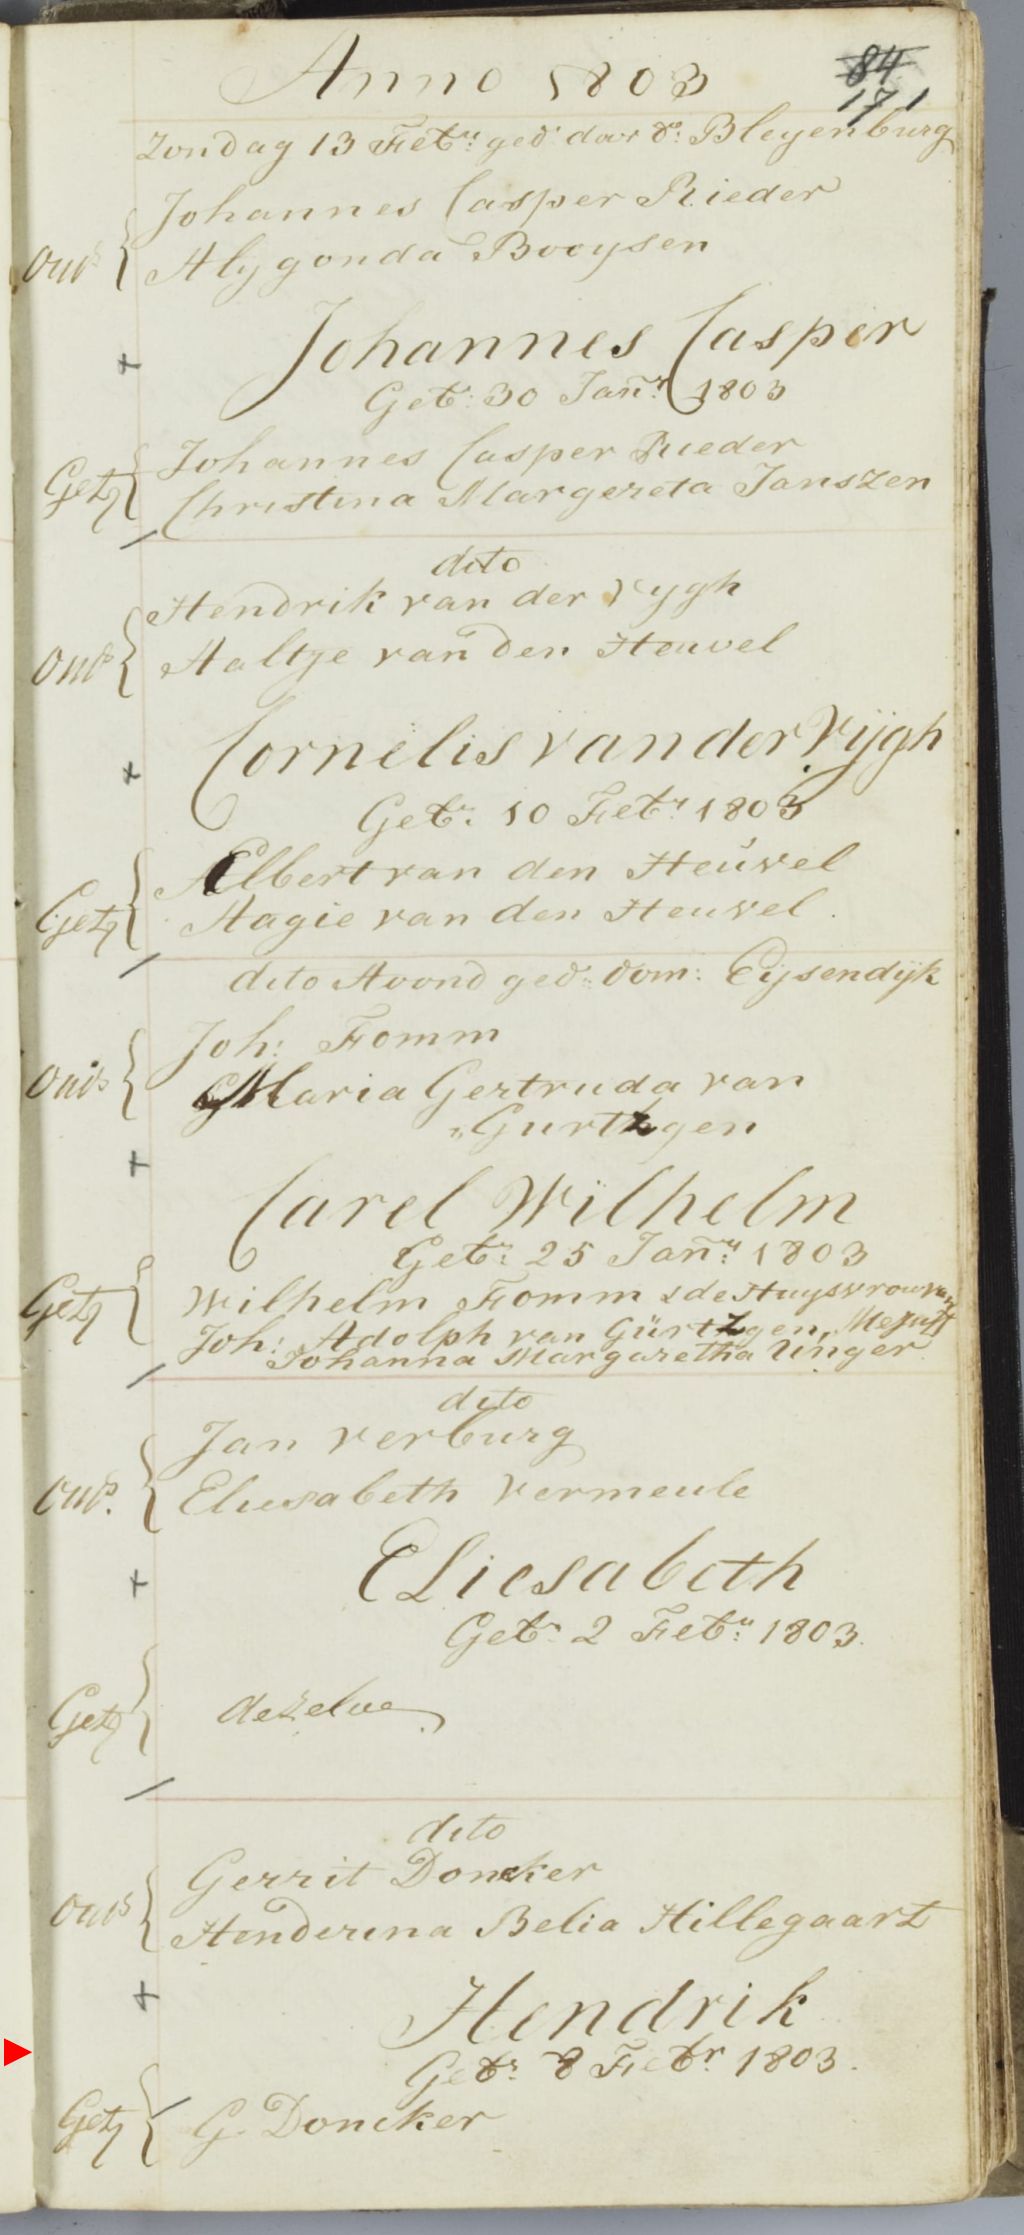 Anno 1803
84
171
Zondag 13 Febr: ged: door ds: Bleyenburg
Johannes Casper Rieder
Oud{
Alygonda Booysen
Johannes Casper
+
Geb: 30 Janr: 1803
Johannes Casper Rieder
Get{
Christina Margereta Janszen
dito
Hendrik van der Vygh
Oud{
Aaltje van den Heuvel
Cornelis van der Vijgh
+
Geb: 10 Febr: 1803
Elbert van den Heuvel
Get{
Aagie van den Heuvel
dito Avond ged: dom: Eijsendijk
Joh: Fomm
Ouds{
Maria Gertruda van
„Gurtzgen
+
Carel Wilhelm
Geb: 25 Janr: 1803
Get{
Wilhelm Fomm & de Huysvrouw van
Joh: Adolph van Gürtzgen, Mejuff
Johanna Margaretha Unger
dito
Jan Verburg
Ouds. {
Eliesabeth Vermeule
ELiesabeth
+
Geb: 2 Febr: 1803.
Get{ dezelve
dito
Gerrit Doncker
Ouds{
Henderina Belia Hillegaart
Hendrik
+
Geb: 8 Febr 1803.
Get{ G. Doncker